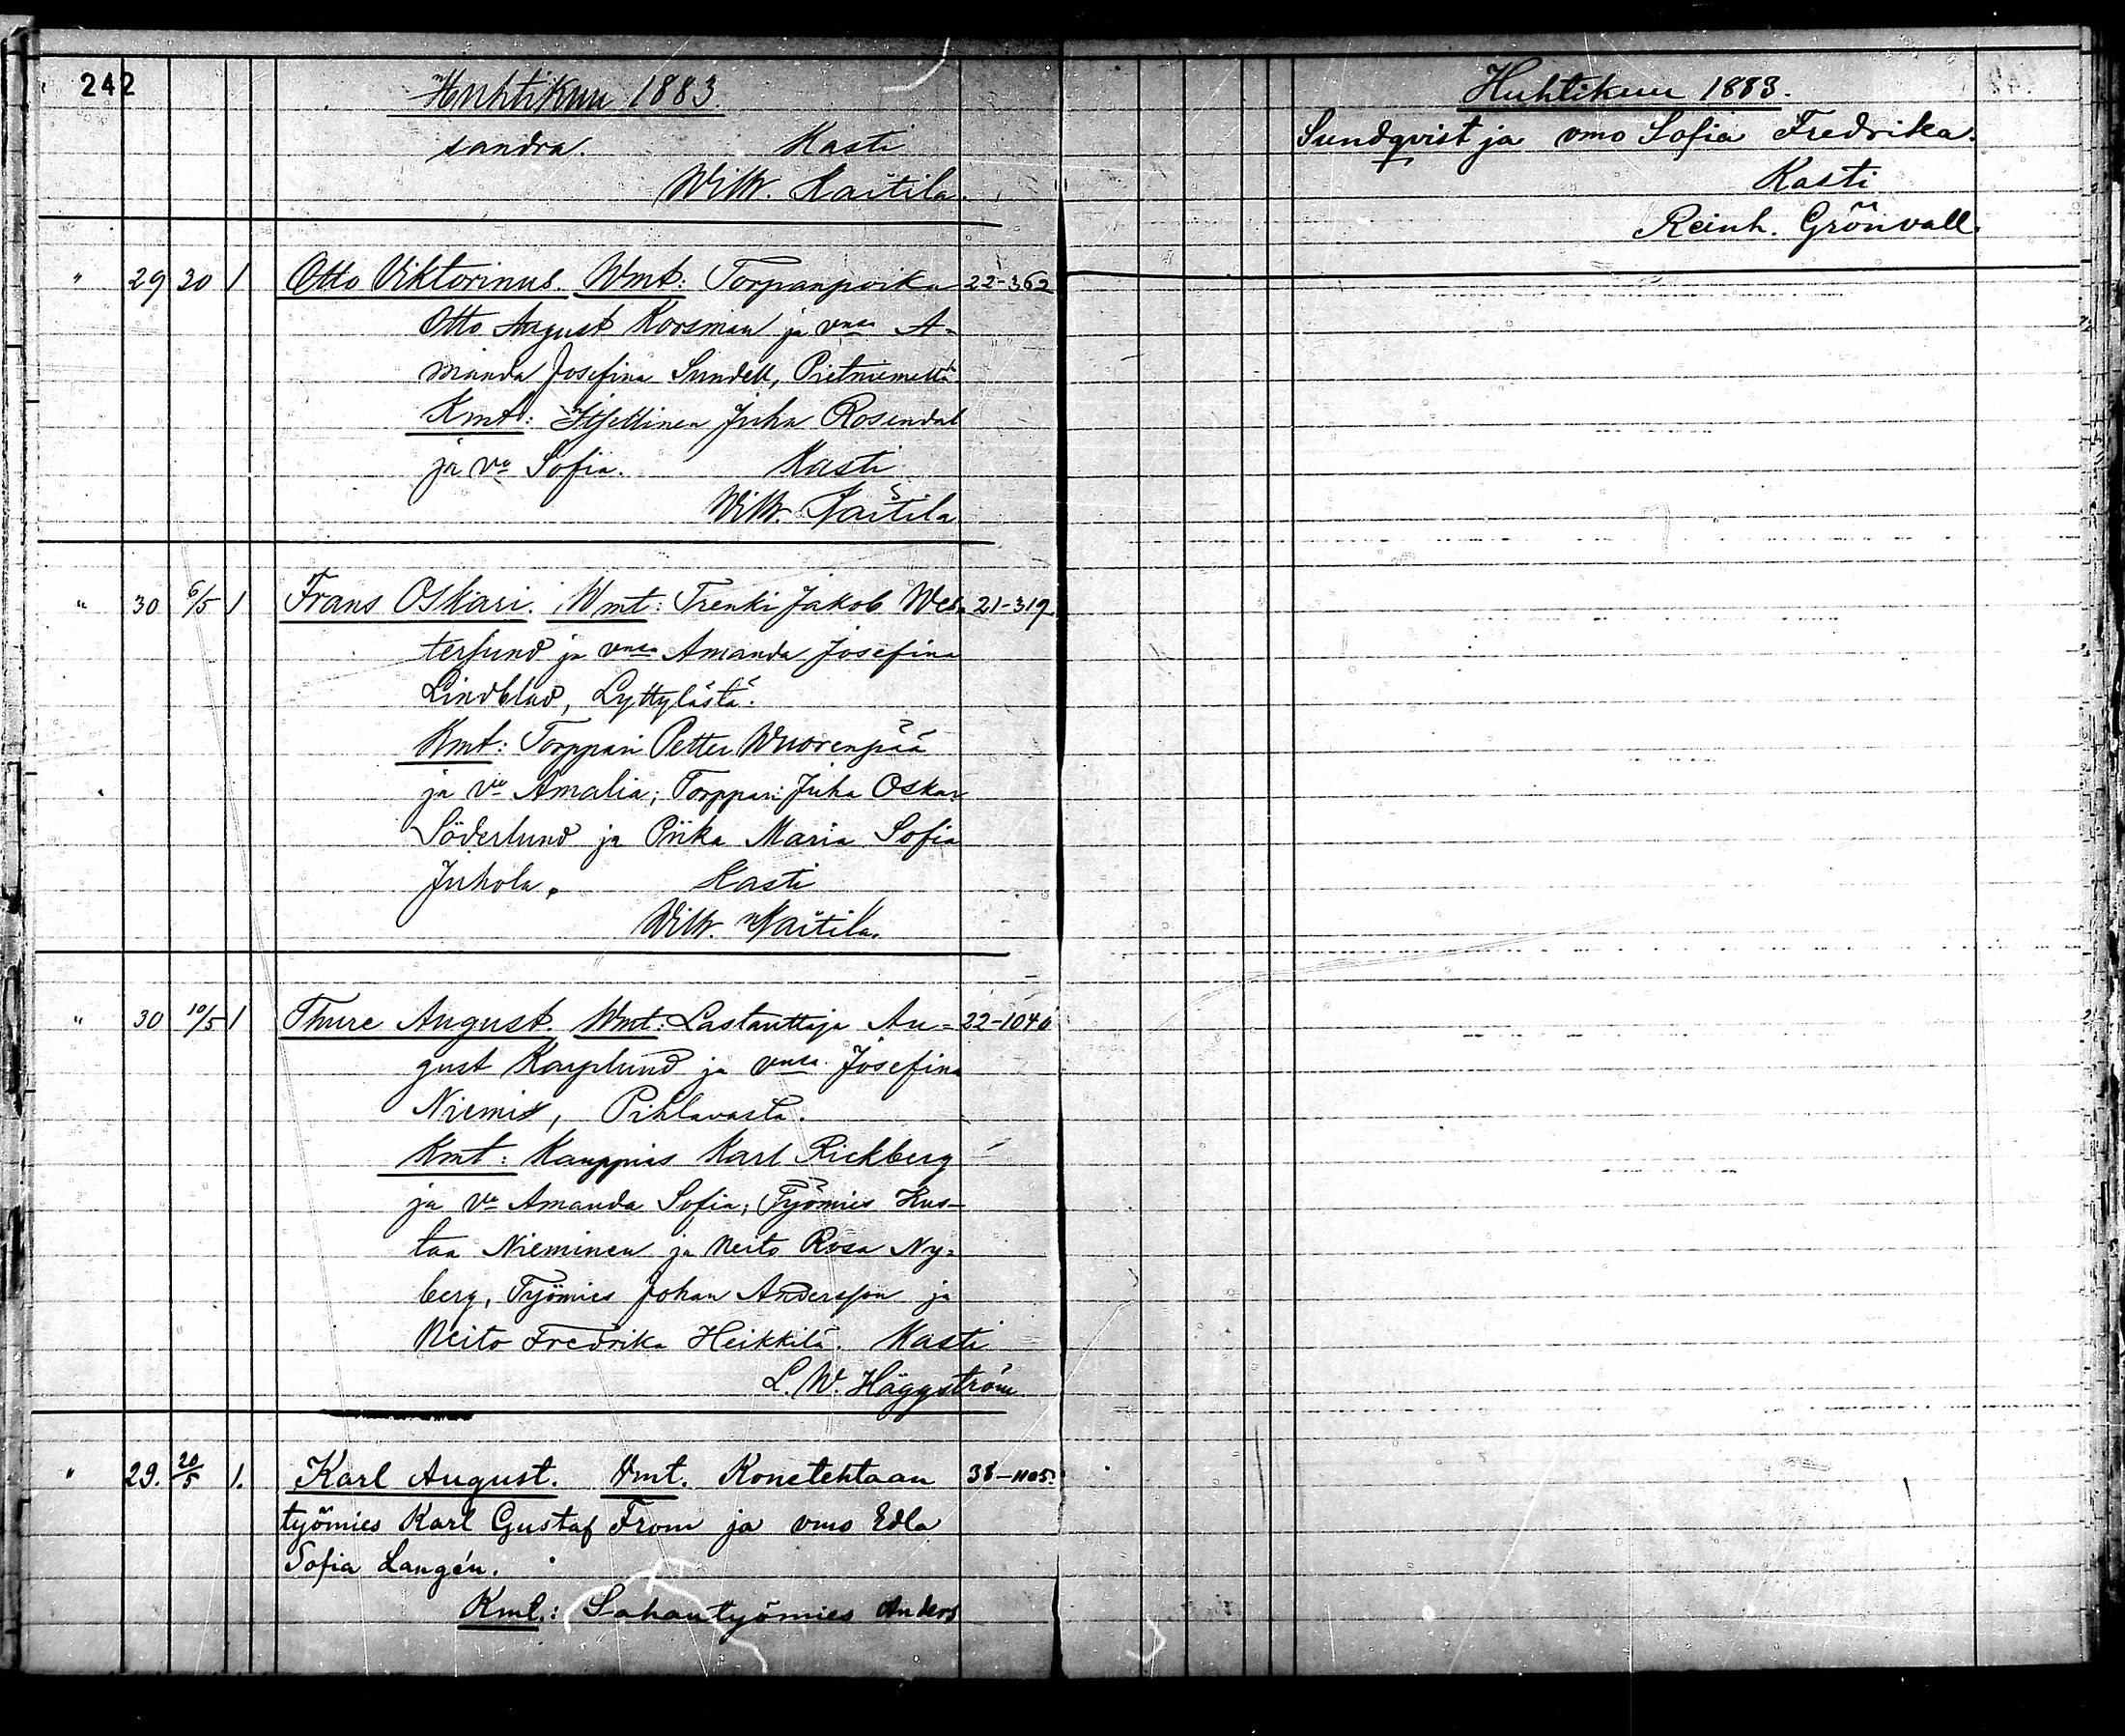 242
Huhtikuu 1883.
sandra. Kasti
Wilh. Kaitila.
" 29 30 1 Otto Viktorinus. Wmt: Torpanpoika 22-362
Otto August Korsman ja vnsa A-
manda Josefina Sundell, Pietniemeltä
Kmt: Itsellinen Juha Rosendal
ja vo Sofia. Kasti
Wilh. Kaitila
" 30 6/5 1 Frans Oskari. Wmt: Trenki Jakob Wes- 21-319.
terlund ja vnsa Amanda Josefina
Lindblad, Lyttylästä.
Kmt: Torppari Petter Wuorenpää
ja vo Amalia; Torppari Juha Oskar
Söderlund ja Piika Maria Sofia
Juhola. Kasti
Wilh. Kaitila.
" 30 10/5 1 Thure August. Wmt: Lastauttaja Au- 22-1040
gust Karplund ja vnsa Josefina
Niemis, Pihlavasta.
Kmt: Kauppias Karl Rickberg
ja vo Amanda Sofia; Työmies Kus-
taa Nieminen ja Neito Rosa Ny-
berg, Työmies Johan Andersson ja
Neito Fredrika Heikkilä. Kasti
L. W. Häggström
" 29. 20/5 1. Karl August. Vmt. Konetehtaan 38-1105.
työmies Karl Gustaf From ja vmo Edla
Sofia Langén.
Kmt.: Sahantyömies Anders
Huhtikuu 1883.
Sundqvist ja vmo Sofia Fredrika.
Kasti
Reinh. Grönvall.